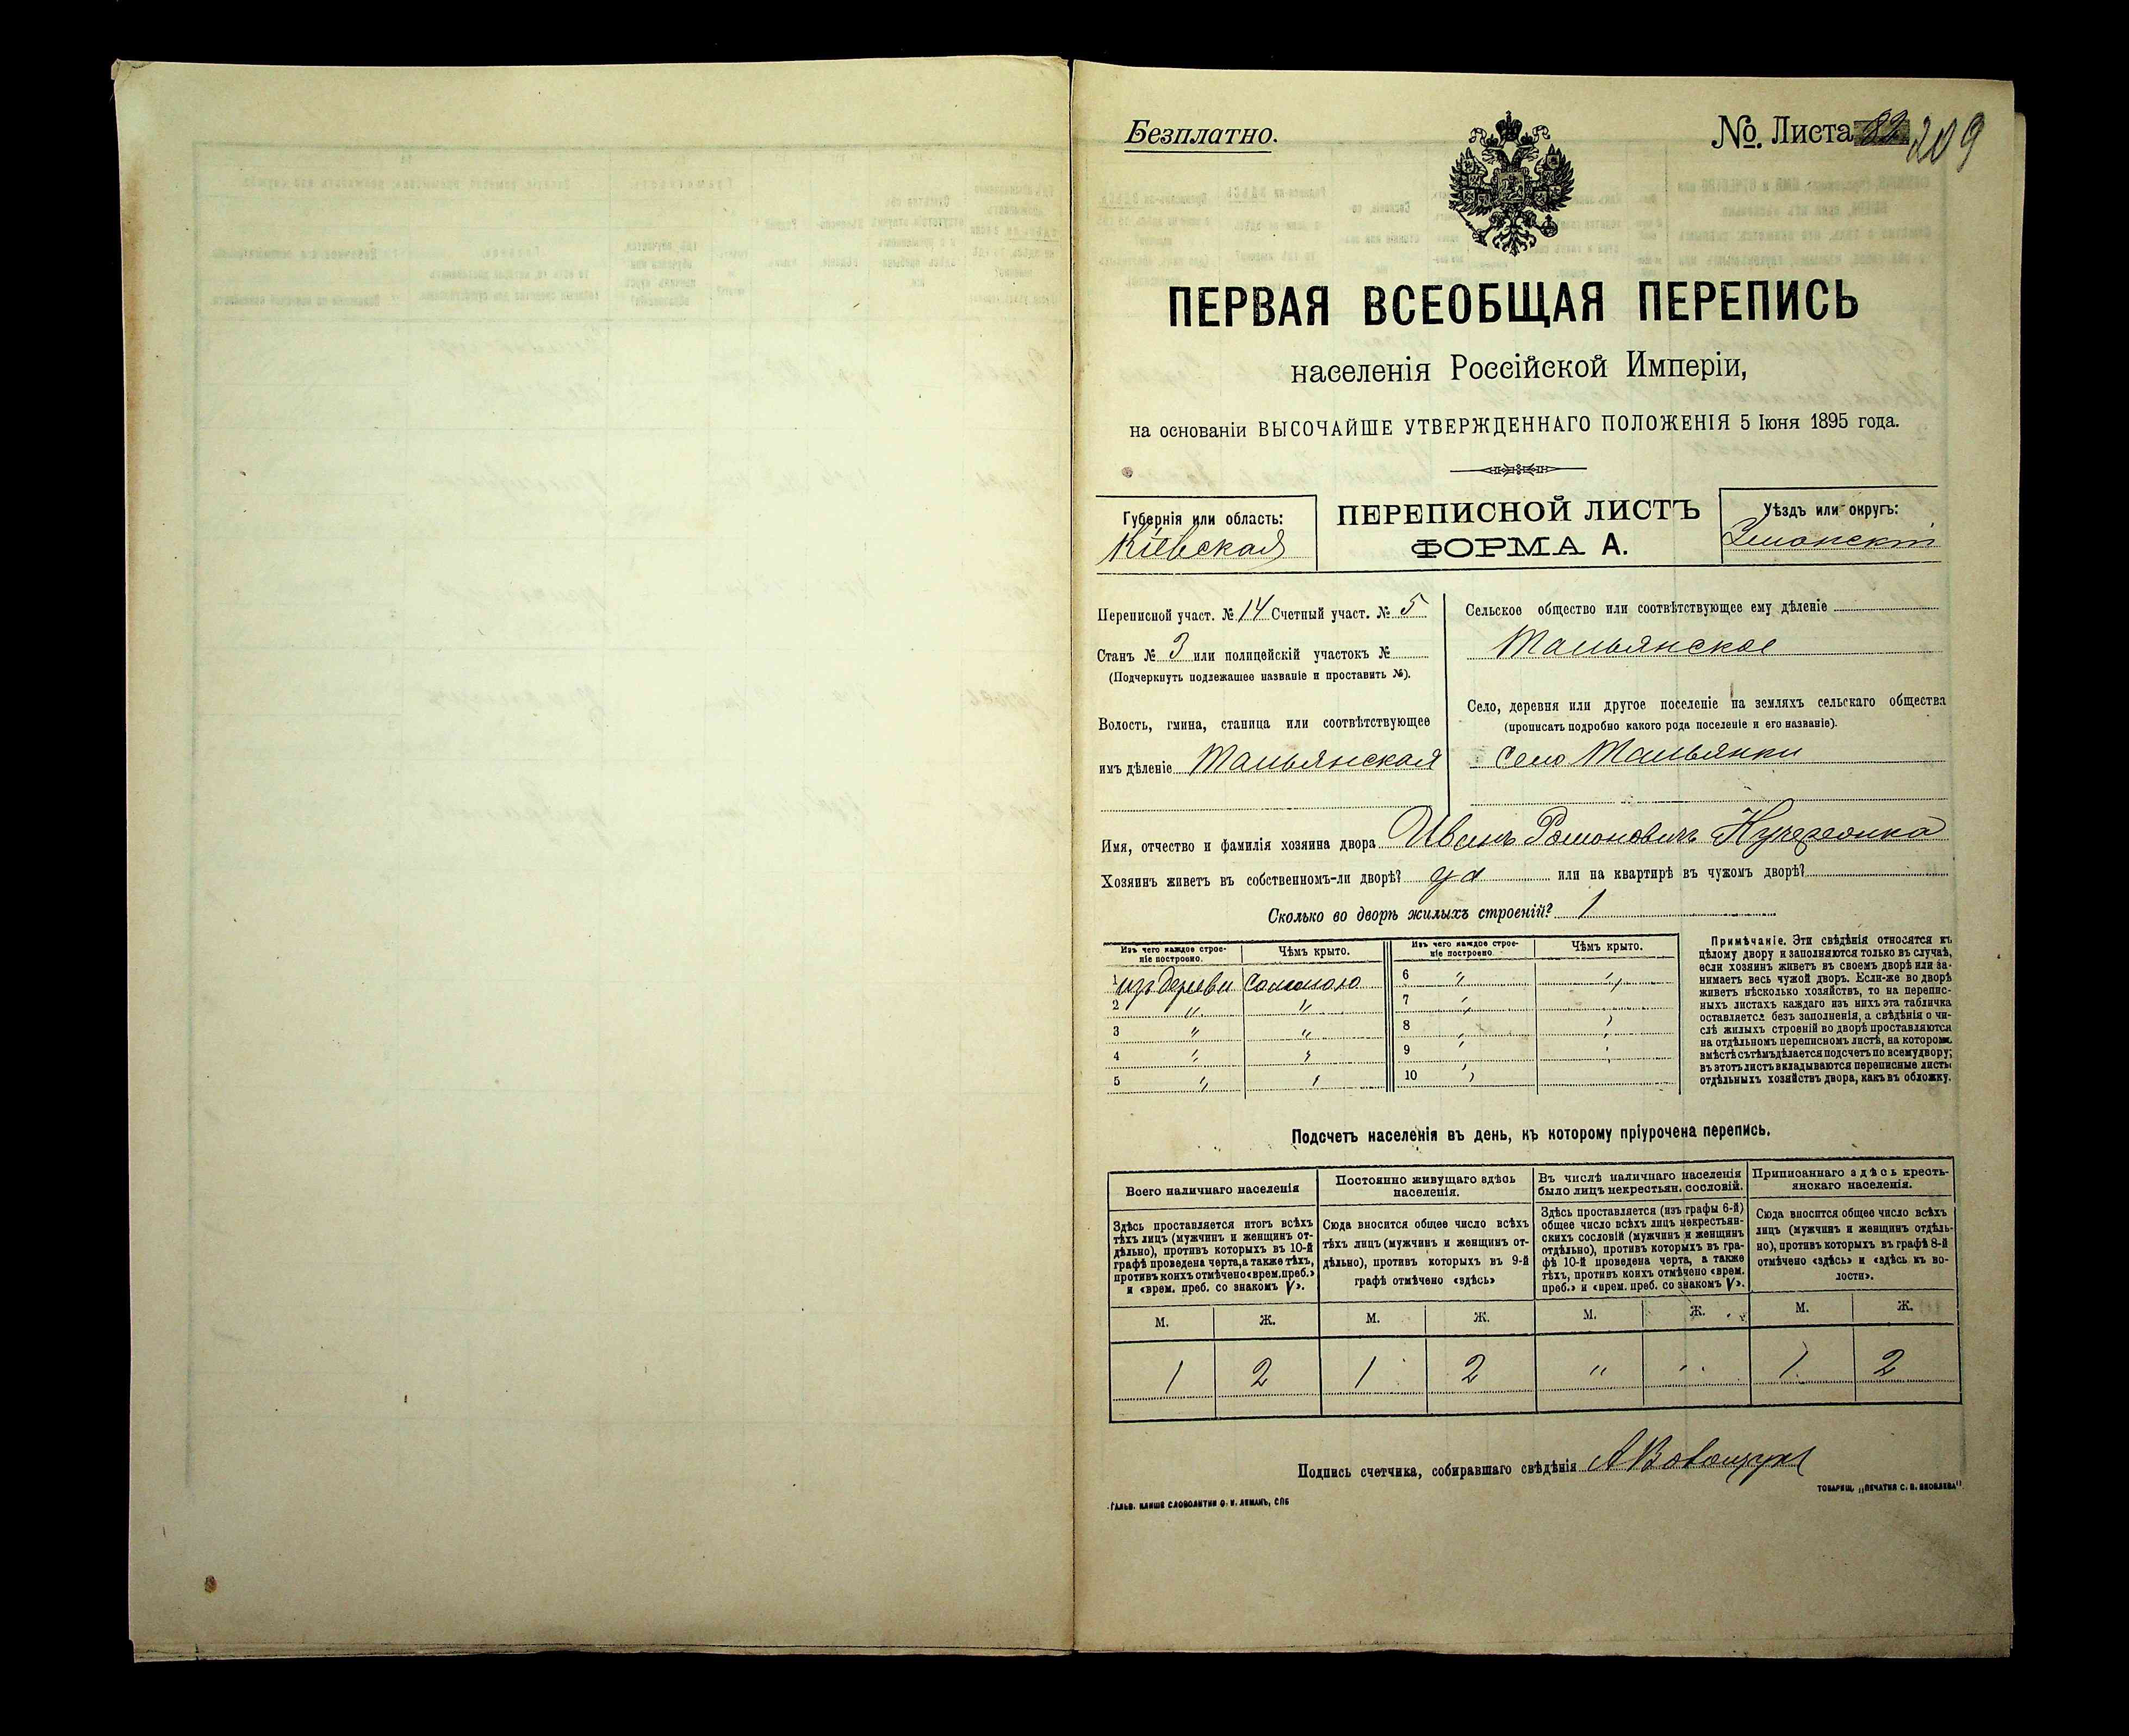 Безплатно.
№. Листа 209
ПЕРВАЯ ВСЕОБЩАЯ ПЕРЕПИСЬ
населенія Россійской Имперіи,
на основаніи ВЫСОЧАЙШЕ УТВЕРЖДЕННАГО ПОЛОЖЕНІЯ 5 Іюня 1895 года.
Губернія или область:
Кіевская
ПЕРЕПИСНОЙ ЛИСТЪ
ФОРМА А.
Уѣздъ или округъ:
Уманскій
Переписной участ. № 14 Счетный участ. № 5
Станъ № 3 или полицейскій участокъ №
(Подчеркнуть подлежащее названіе и проставить №).
Волость, гмина, станица или соотвѣтствующее
имъ дѣленіе Тальянская
Сельское общество или соотвѣтствующее ему дѣленіе
Тальянское
Село, деревня или другое поселеніе на земляхъ сельскаго общества
(прописать подробно какого рода поселеніе и его названіе).
Село Тальянки
Имя, отчество и фамилія хозяина двора Иванъ Романовичъ
Хозяинъ живетъ въ собственномъ-ли дворѣ? да или на квартирѣ въ чужомъ дворѣ?
Сколько во дворѣ жилыхъ строеній? 1
Изъ чего каждое строе-
ніе построено.
Чѣмъ крыто.
1 изъ дерева Соломою
2 " "
3 " "
4 " "
5 " "
Изъ чего каждое строе-
ніе построено.
Чѣмъ крыто.
6 " "
7 "
8 " "
9 " "
10 "
Примѣчаніе. Эти свѣдѣнія относятся къ
цѣлому двору и заполняются только въ случаѣ,
если хозяинъ живетъ въ своемъ дворѣ или за-
нимаетъ весь чужой дворъ. Если-же во дворѣ
живетъ нѣсколько хозяйствъ, то на перепис-
ныхъ листахъ каждаго изъ нихъ эта табличка
оставляется безъ заполненія, а свѣдѣнія о чи-
слѣ жилыхъ строеній во дворѣ проставляются
на отдѣльномъ переписномъ листѣ, на которомъ
вмѣстѣ съ тѣмъ дѣлается подсчетъ по всему двору;
въ этотъ листъ вкладываются переписные листы
отдѣльныхъ хозяйствъ двора, какъ въ обложку.
Подсчетъ населенія въ день, къ которому пріурочена перепись.
Всего наличнаго населенія
Здѣсь проставляется итогъ всѣхъ
тѣхъ лицъ (мужчинъ и женщинъ от-
дѣльно), противъ которыхъ въ 10-й
графѣ проведена черта, а также тѣхъ,
противъ коихъ отмѣчено «врем. преб.»
и «врем. преб. со знакомъ V».
Постоянно живущаго здѣсь
населенія.
Сюда вносится общее число всѣхъ
тѣхъ лицъ (мужчинъ и женщинъ от-
дѣльно), противъ которыхъ въ 9-й
графѣ отмѣчено «здѣсь»
Въ числѣ наличнаго населенія
было лицъ некрестьян. сословій.
Здѣсь проставляется (изъ графы 6-й)
общее число всѣхъ лицъ некрестьян-
скихъ сословій (мужчинъ и женщинъ
отдѣльно), противъ которыхъ въ гра-
фѣ 10-й проведена черта, а также
тѣхъ, противъ коихъ отмѣчено «врем.
преб.» и «врем. преб. со знакомъ V».
Приписаннаго здѣсь кресть-
янскаго населенія.
Сюда вносится общее число всѣхъ
лицъ (мужчинъ и женщинъ отдѣль-
но), противъ которыхъ въ графѣ 8-й
отмѣчено «здѣсь» и «здѣсь къ во-
лости».
М. Ж. М. Ж. М. Ж. М. Ж.
1 2 1 2 " " 1 2
Подпись счетчика, собиравшаго свѣдѣнія
ГАЛЬВ. КЛИШЕ СЛОВОЛИТНИ О. И. ЛЕМАНЪ, СПБ
ТОВАРИЩ. „ПЕЧАТНЯ С. П. ЯКОВЛЕВА"